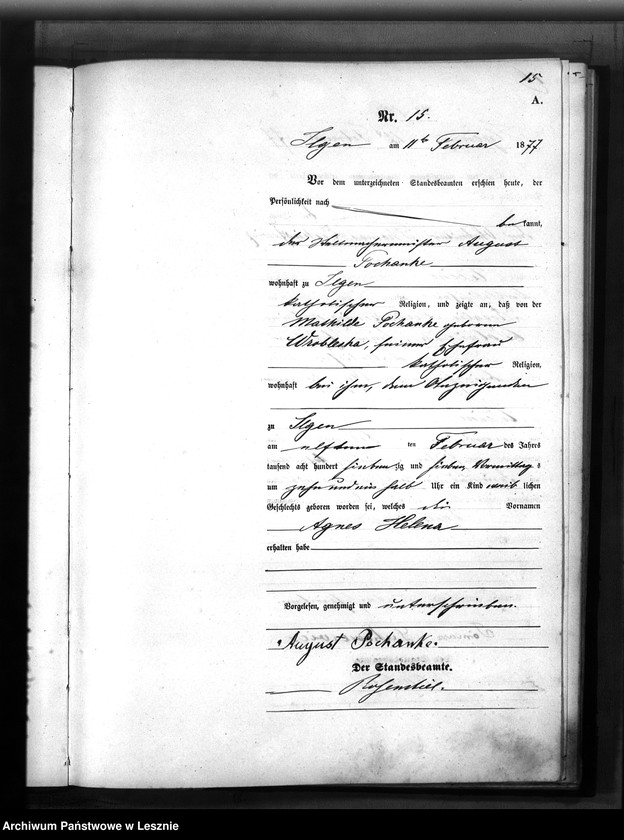 15
A.
Nr. 15.
Ilgen am 11ten Februar 1877
Vor dem unterzeichneten Standesbeamten erschien heute, der
Persönlichkeit nach
bekannt,
der Stellmachermeister August
Pochanke
wohnhaft zu Ilgen
katholischer Religion, und zeigte an, daß von der
Mathilde Pochanke geborene
Wrobleska, seiner Ehefrau
katholischer Religion,
wohnhaft bei ihm, dem Anzeigenden
zu Ilgen
am elften ten Februar des Jahres
tausend acht hundert siebenzig und sieben, Vormittags
um zehn und ein halb Uhr ein Kind weiblichen
Geschlechts geboren worden sei, welches die Vornamen
Agnes Helena
erhalten habe
Vorgelesen, genehmigt und unterschrieben.
August Pochanke.
Der Standesbeamte.
Archiwum Państwowe w Lesznie